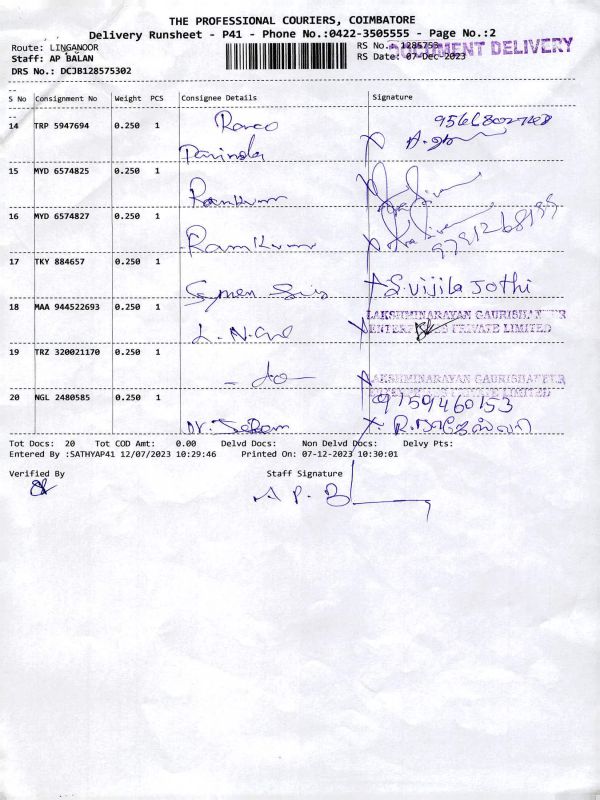 THE PROFESSIONAL COURIERS, COIMBATORE
Delivery Runsheet - P41 - Phone No.:0422-3505555 - Page No.:2
Route: LINGANOOR
RS No.: 1285753
DOCUMENT DELIVERY
Staff: AP BALAN
RS Date: 07-Dec-2023
DRS No.: DCJB128575302
S No Consignment No Weight PCS Consignee Details Signature
14 TRP 5947694 0.250 1
15 MYD 6574825 0.250 1 Ramkumar
16 MYD 6574827 0.250 1 Ramkumar
9791268155
17 TKY 884657 0.250 1 S.vijila Jothi
18 MAA 944522693 0.250 1 L.N. LAKSHMINARAYAN GAURISHANKER
ENTERPRISES PRIVATE LIMITED
19 TRZ 320021170 0.250 1 - do - LAKSHMINARAYAN GAURISHANKER
PRIVATE LIMITED
9150460153
20 NGL 2480585 0.250 1 Dr. R.
Tot Docs: 20 Tot COD Amt: 0.00 Delvd Docs: Non Delvd Docs: Delvy Pts:
Entered By :SATHYAP41 12/07/2023 10:29:46 Printed On: 07-12-2023 10:30:01
Verified By Staff Signature
A P. B